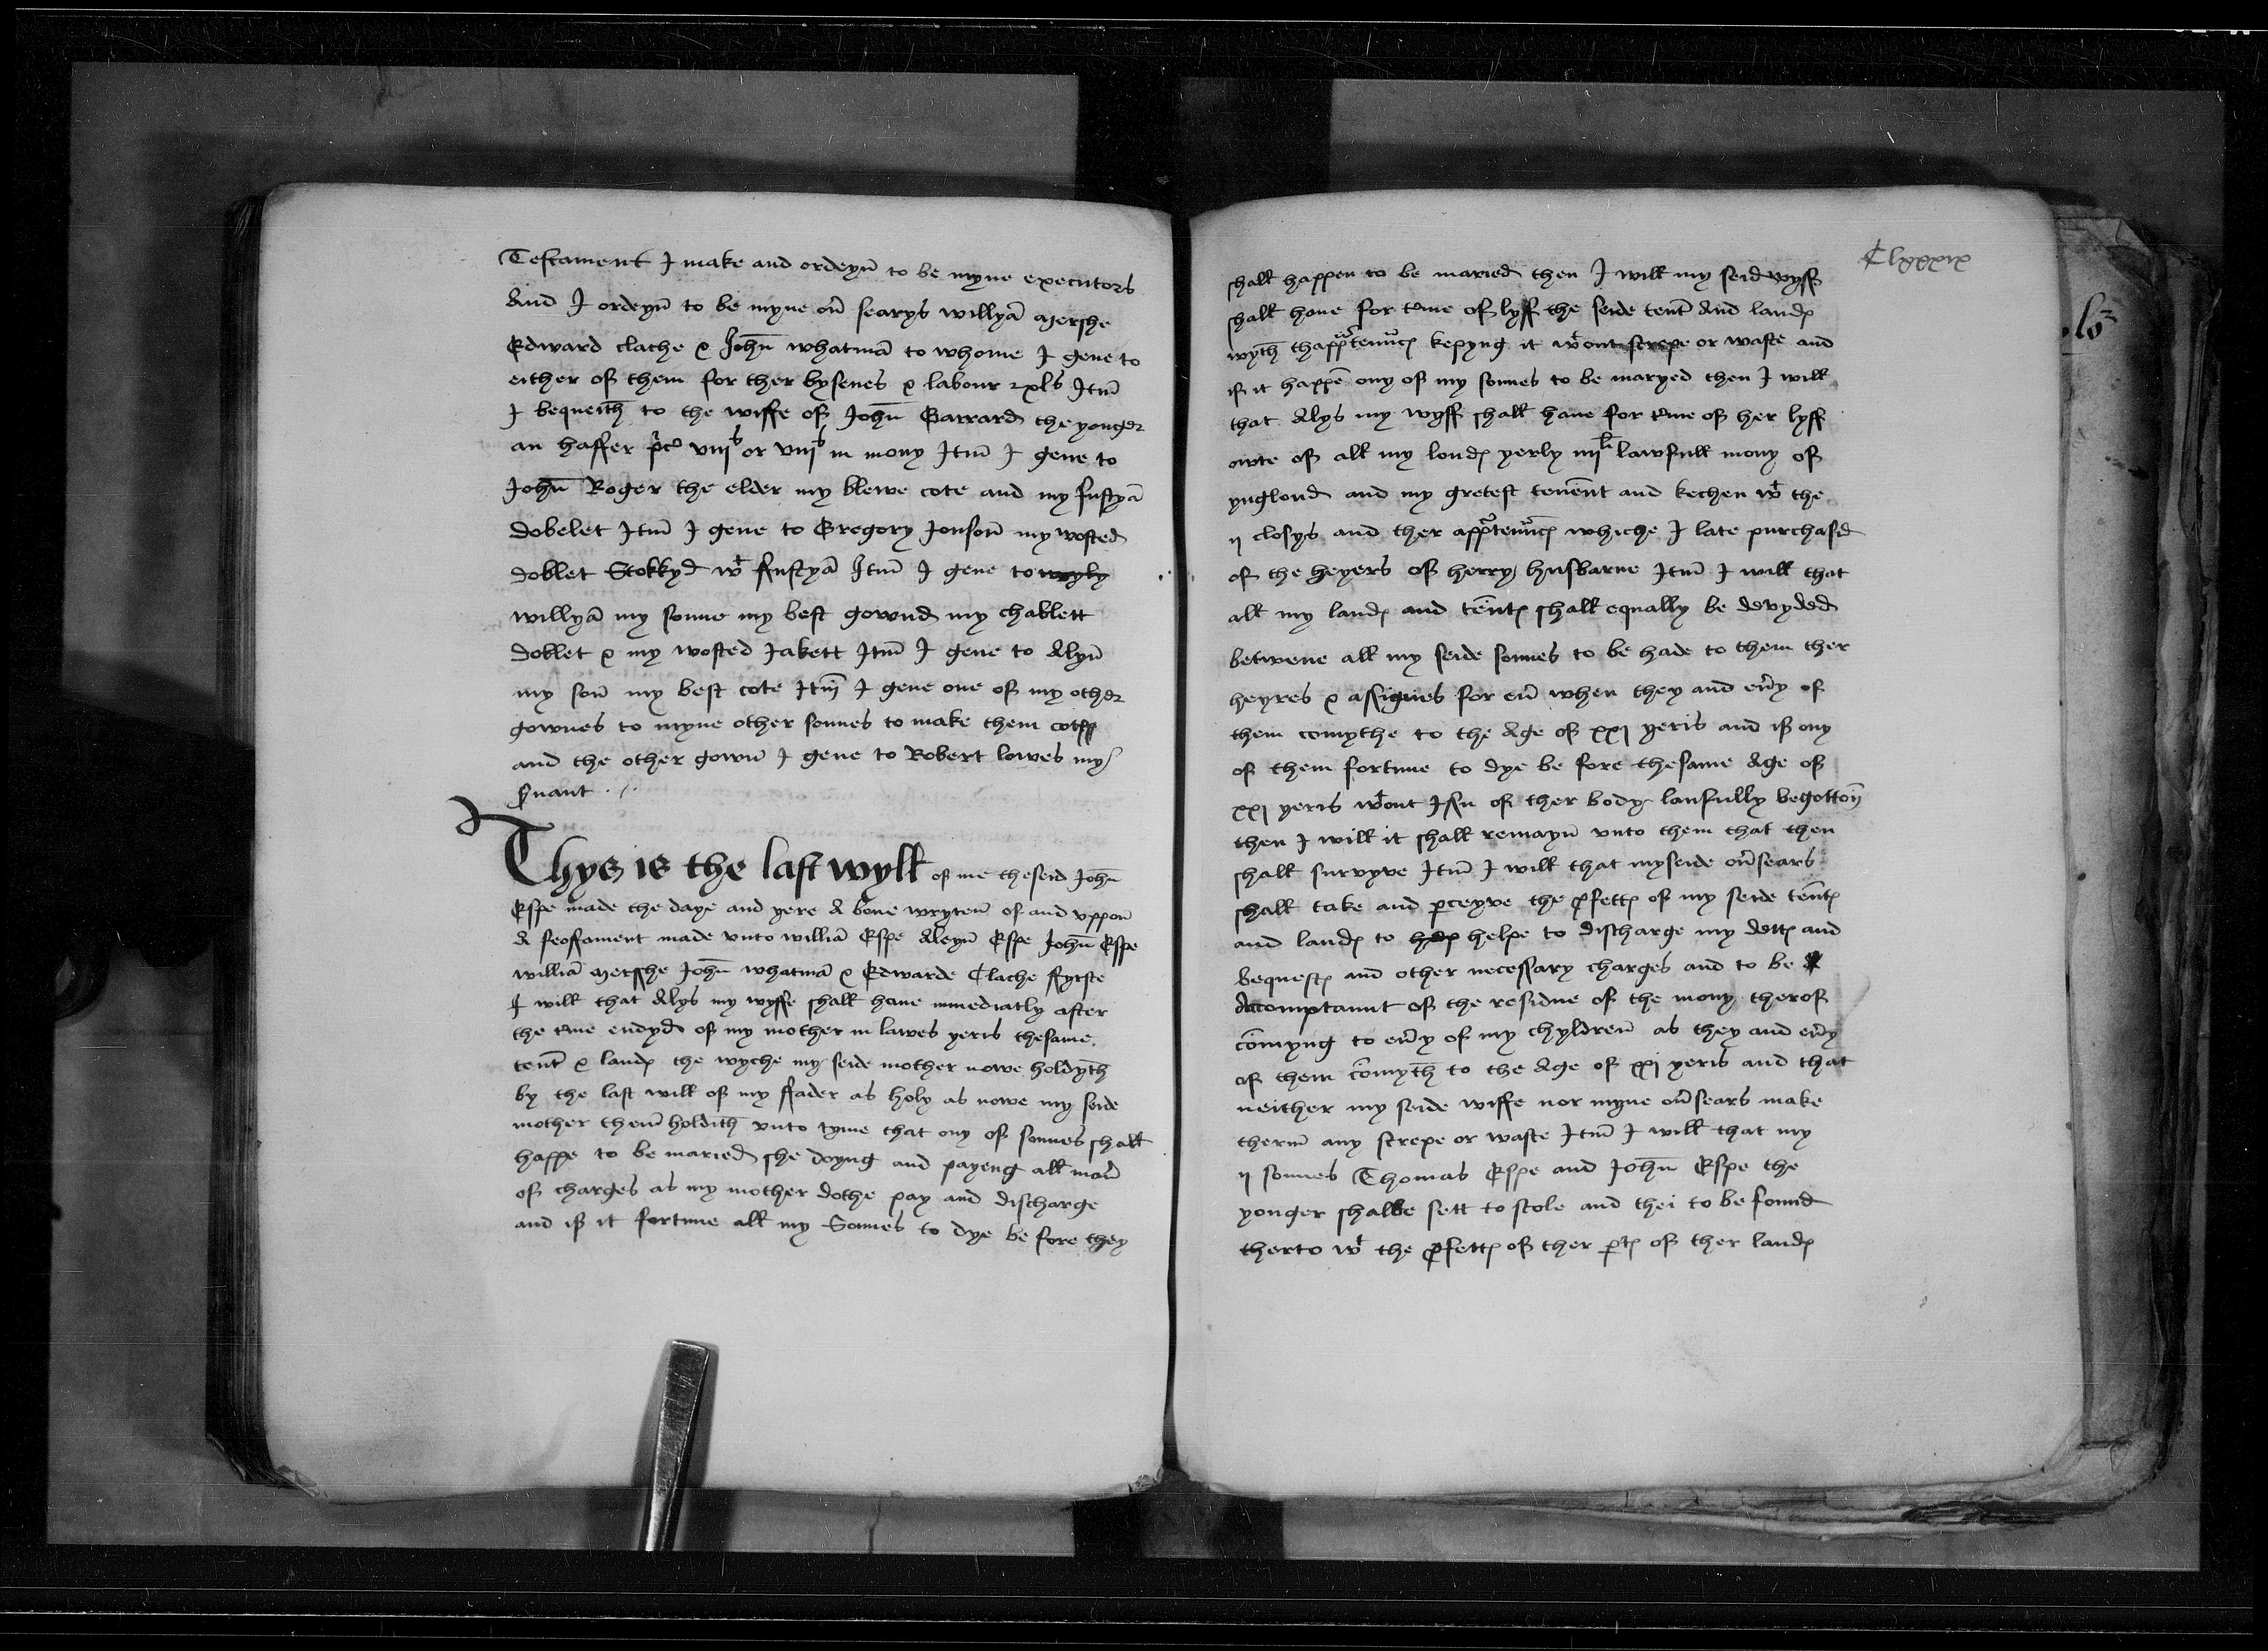 Testament I make and ordeyn̄ to be myne executors
And I ordeyn̄ to be myne on̄ searys willyā Mersshe
Edward clache & Joh̄n whatmā to whome I geue to
either of them for ther bysenes & labour xls Itm̄
I bequeith to the wiffe of Joh̄n Garrard the yonger
an haffer p̄co viijs or viijs in mony Itm̄ I geue to
Joh̄n Roger the elder my blewe cote and my fustyā
dobelet Itm̄ I geue to Gregory Jonson̄ my wosted
doblet Stokkyd wt fustyā Itm̄ I geue to wyly
willyā my sonne my best gownd my chablett
doblet & my wosted Jakett Itm̄ I geue to Alyn̄
my son̄ my best cote Itm̄ I geue one of my other
gownes to myne other sonnes to make them
and the other gown̄ I geue to Robert lowes my
s̄uant
Thys is the last wyll of me the seid Joh̄n
Espe made the daye and yere A boue wryten̄ of and vppon̄
A feoffament made vnto williā Espe Aleyn̄ Espe Joh̄n Espe
williā Mersshe Joh̄n whatmā & Edwarde Clache ffyrste
I will that Alys my wyffe shall haue immediatly after
the t̄me endyd of my mother in lawes yeris thesame
tent̄ & landꝭ the wyche my seide mother nowe holdyth
by the last will of my ffader as holy as nowe my seide
mother them̄ holdith vnto tyme that ony of sonnes shall
happe to be maried she doyng and payeng all man̄
of charges as my mother dothe pay and discharge
and if it fortune all my Sonnes to dye be fore they
Clxxxix
shall happen to be maried then I will my seid wyff
shall haue for t̄me of lyff the seide tent̄ And landꝭ
wyth thapp̄tenn̄cꝭ kepyng it wtout screpe or waste and
if it happē ony of my sonnes to be maryed then I will
that Alys my wyff shall haue for t̄me of her lyff
owte of all my londꝭ yerly iiijli lawfull mony of
ynglond and my gretest tenēnt and kechen wt the
ij closys and ther app̄tenn̄cꝭ whiche I late purchasd
of the heyers of herry husbarne Itm̄ I will that
all my landꝭ and tēntꝭ shall equally be devyded
betwene all my seide sonnes to be hade to them ther
heyres & assignes for eū when they and eūy of
them comythe to the Age of xxj yeris and if ony
of them fortune to dye be fore thesame Age of
xxj yeris wtout Issu of ther body laufully begotton̄
then I will it shall remayn̄ vnto them that then
shall survyve Itm̄ I will that my seide on̄sears
shall take and p̄ceyve the p̄fettꝭ of my seide tēntꝭ
and landꝭ to helpe to discharge my dettꝭ and
bequestꝭ and other necessary charges and to be
Accomptaunt of the residue of the mony therof
cōmyng to eūy of my chyldren̄ as they and eūy
of them cōmyth to the Age of xxj yeris and that
neither my seide wiffe nor myne on̄sears make
therin̄ any screpe or waste Itm̄ I will that my
ij sonnes Thomas Espe and Joh̄n Espe the
yonger shalbe sett to scole and thei to be found
therto wt the p̄fettꝭ of ther p̄tꝭ of ther landꝭ